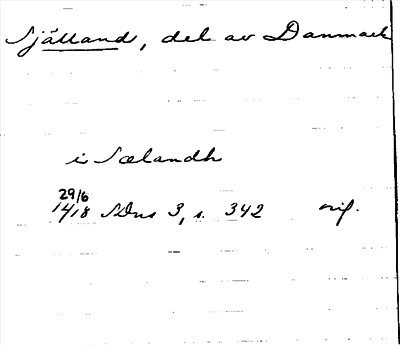 Själland, del av Danmark
i Sælandh
29/6
1418 SDns 3, s. 342 orig.